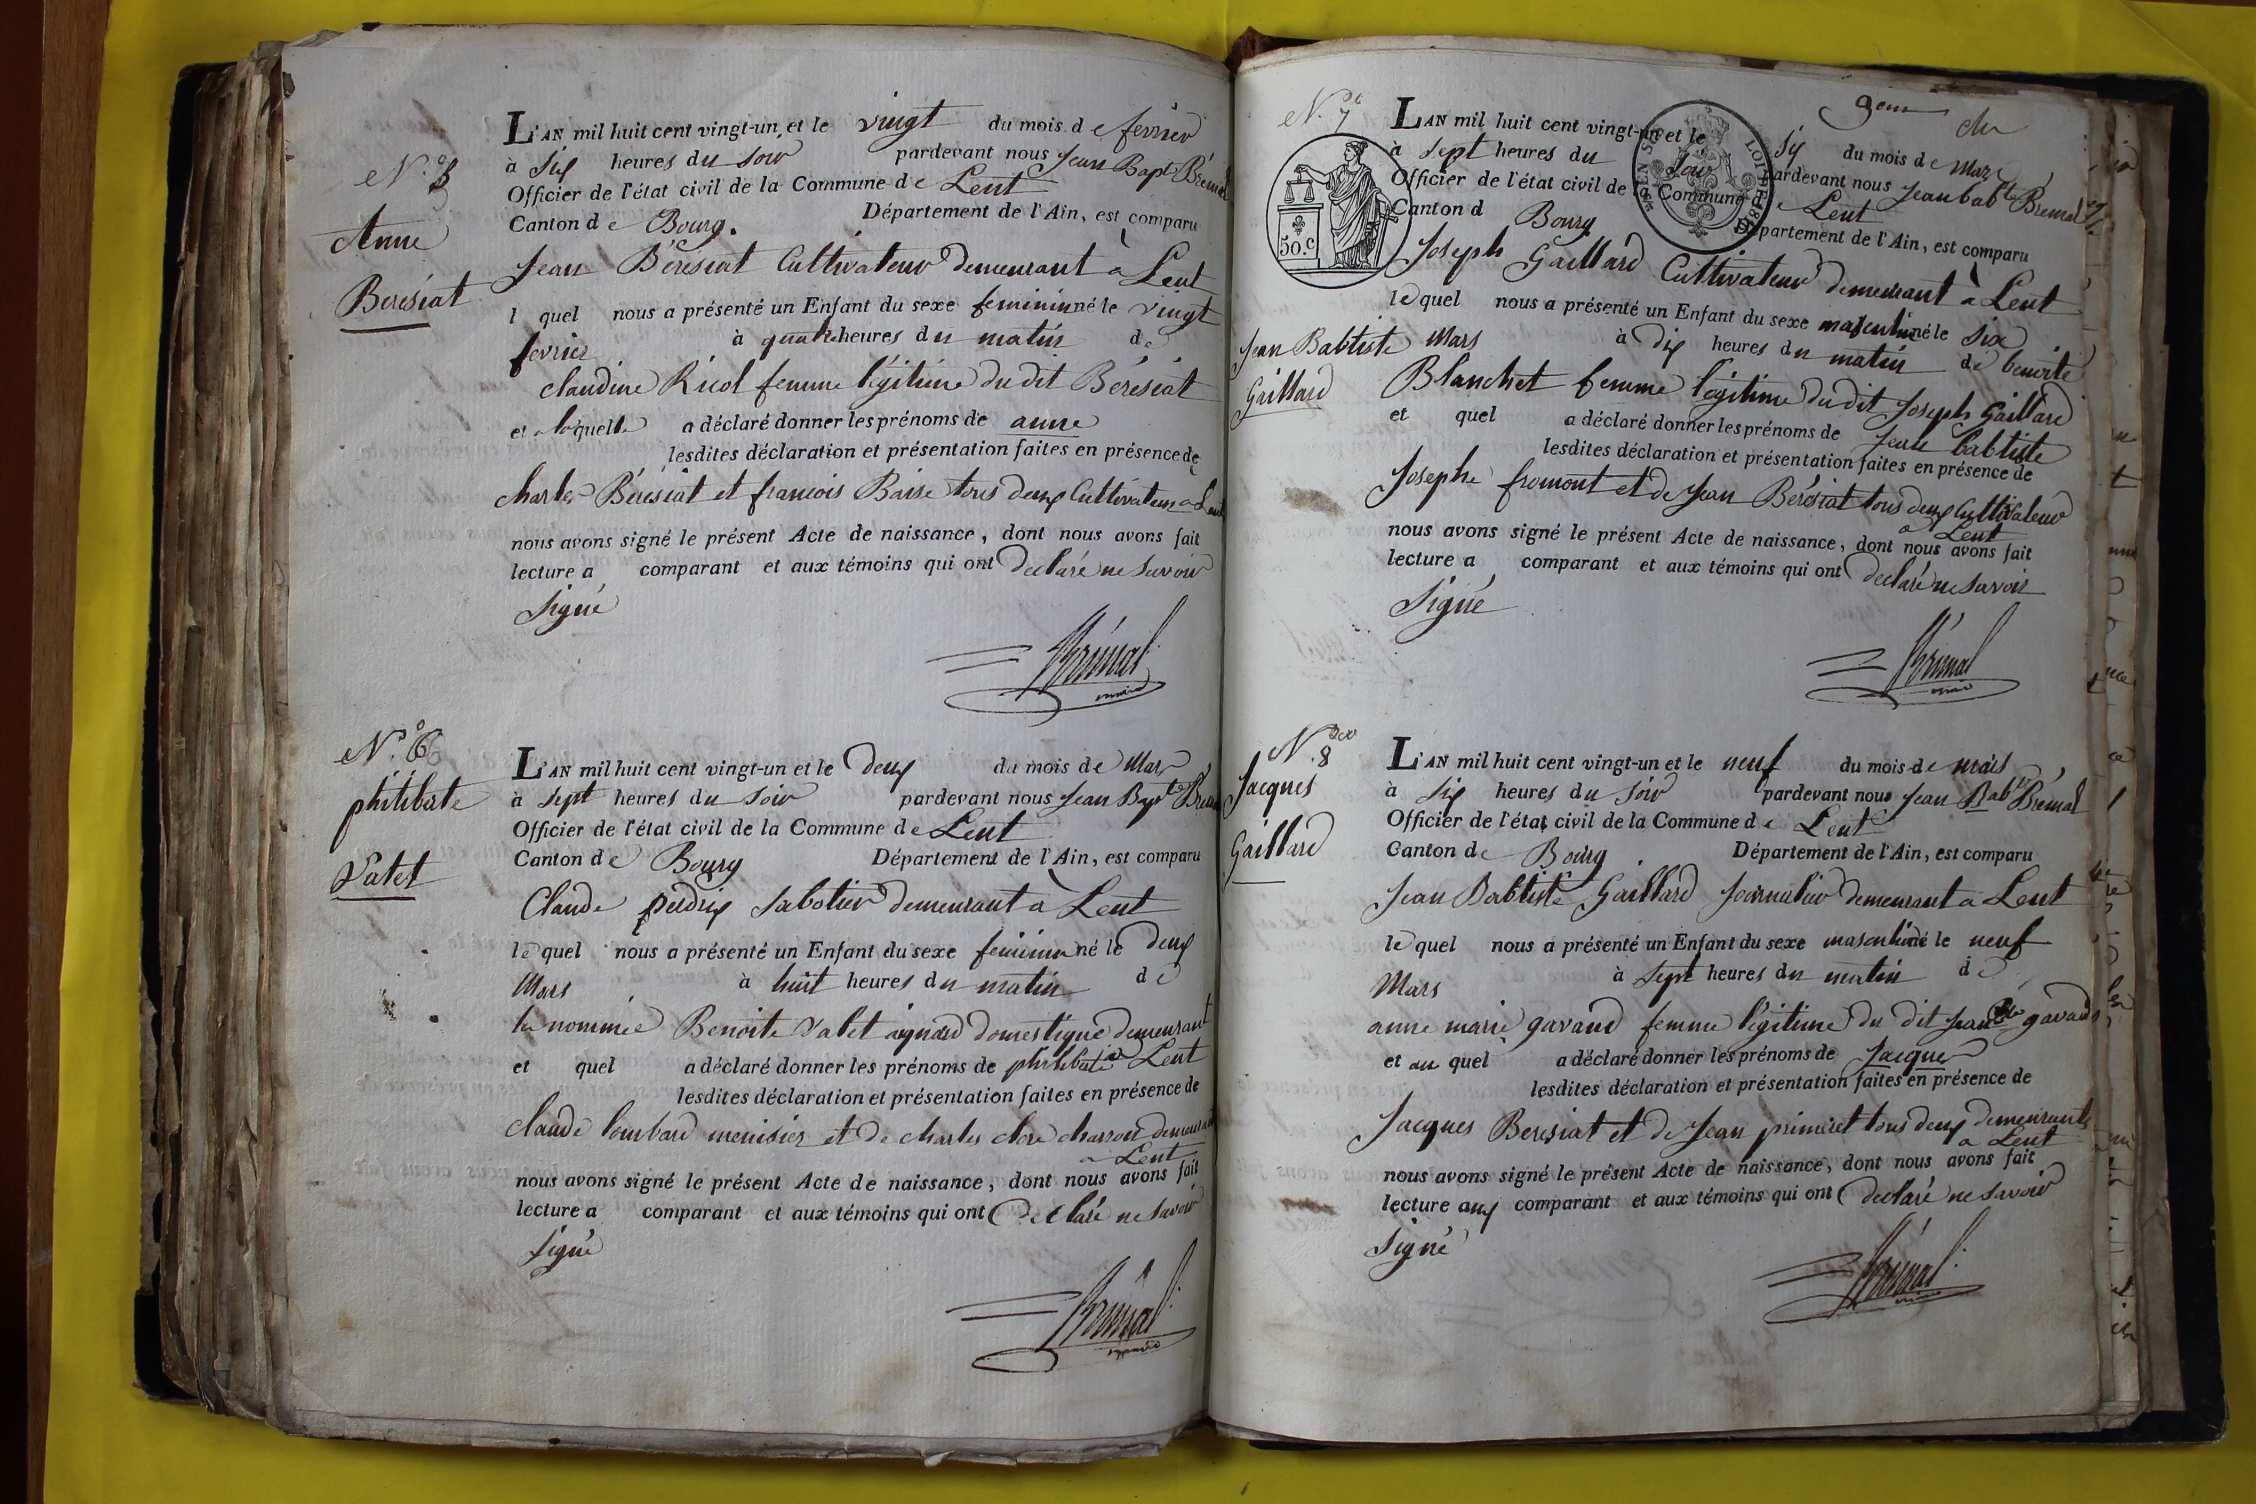 N.o 5
Anne
Berésiat
L'AN mil huit cent vingt-un et le vingt du mois de fevrier
à Six heures du Soir pardevant nous Jean Bapte Brémal
Officier de l'état civil de la Commune de Lent
Canton de Bourg. Département de l'Ain, est comparu
Jean Bérésiat Cultivateur demeurant à Lent
l quel nous a présenté un Enfant du sexe feminin né le vingt
fevrier à quatre heures du matin de
claudine Ricol femme légitime du dit Bérésiat
et a laquelle a déclaré donner les prénoms de anne
lesdites déclaration et présentation faites en présence de
charles Bérésiat et francois Baise tous deux Cultivateurs a Lent
nous avons signé le présent Acte de naissance, dont nous avons fait
lecture a comparant et aux témoins qui ont declaré ne Savoir
Signé
Brémal
maire
N.o 6
philiberte
Valet
L'AN mil huit cent vingt-un et le deux du mois de Mars
à Sept heures du Soir pardevant nous Jean Bapte Brémal
Officier de l'état civil de la Commune de Lent
Canton de Bourg Département de l'Ain, est comparu
Claude perdrix Sabotier demeurant à Lent
le quel nous a présenté un Enfant du sexe féminin né le deux
Mars à huit heures du matin de
la nommée Benoite Valet domestique demeurant
et quel a déclaré donner les prénoms de philiberte à Lent
lesdites déclaration et présentation faites en présence de
claude lombard menisier et de charles clere charron demeurant
a Lent
nous avons signé le présent Acte de naissance, dont nous avons fait
lecture a comparant et aux témoins qui ont declaré ne Savoir
Signé
Brémal
maire
9em
N. 7
50.c
Jean Babtiste
Gaillard
L'AN mil huit cent vingt-un et le Six du mois de Mars
à Sept heures du Soir pardevant nous Jean babte Brémal
Officier de l'état civil de la Commune de Lent
Canton d Bourg Département de l'Ain, est comparu
Joseph Gaillard Cultivateur demeurant à Lent
le quel nous a présenté un Enfant du sexe masculin né le Six
Mars à dix heures du matin de benoite
Blanchet femme légitime du dit Joseph Gaillard
et quel a déclaré donner les prénoms de Jean babtiste
lesdites déclaration et présentation faites en présence de
Josephe fromont et de Jean Berésiat tous deux Cultivateur
a Lent
nous avons signé le présent Acte de naissance, dont nous avons fait
lecture a comparant et aux témoins qui ont declaré ne Savoir
Signé
Brémal
maire
N. 8
Jacques
Gaillard
L'AN mil huit cent vingt-un et le neuf du mois de mars
à Six heures du Soir pardevant nous Jean Babte Brémal
Officier de l'état civil de la Commune de Lent
Canton de Bourg Département de l'Ain, est comparu
Jean Babtiste Gaillard Journalier demeurant a Lent
le quel nous a présenté un Enfant du sexe masculin né le neuf
Mars à Sept heures du matin de
anne marie gavand femme légitime du dit Jean bte gavand
et au quel a déclaré donner les prénoms de Jacques
lesdites déclaration et présentation faites en présence de
Jacques Beresiat et de Jean primeret tous deux demeurants
a Lent
nous avons signé le présent Acte de naissance, dont nous avons fait
lecture aux comparant et aux témoins qui ont declaré ne Savoir
Signé
Brémal
maire